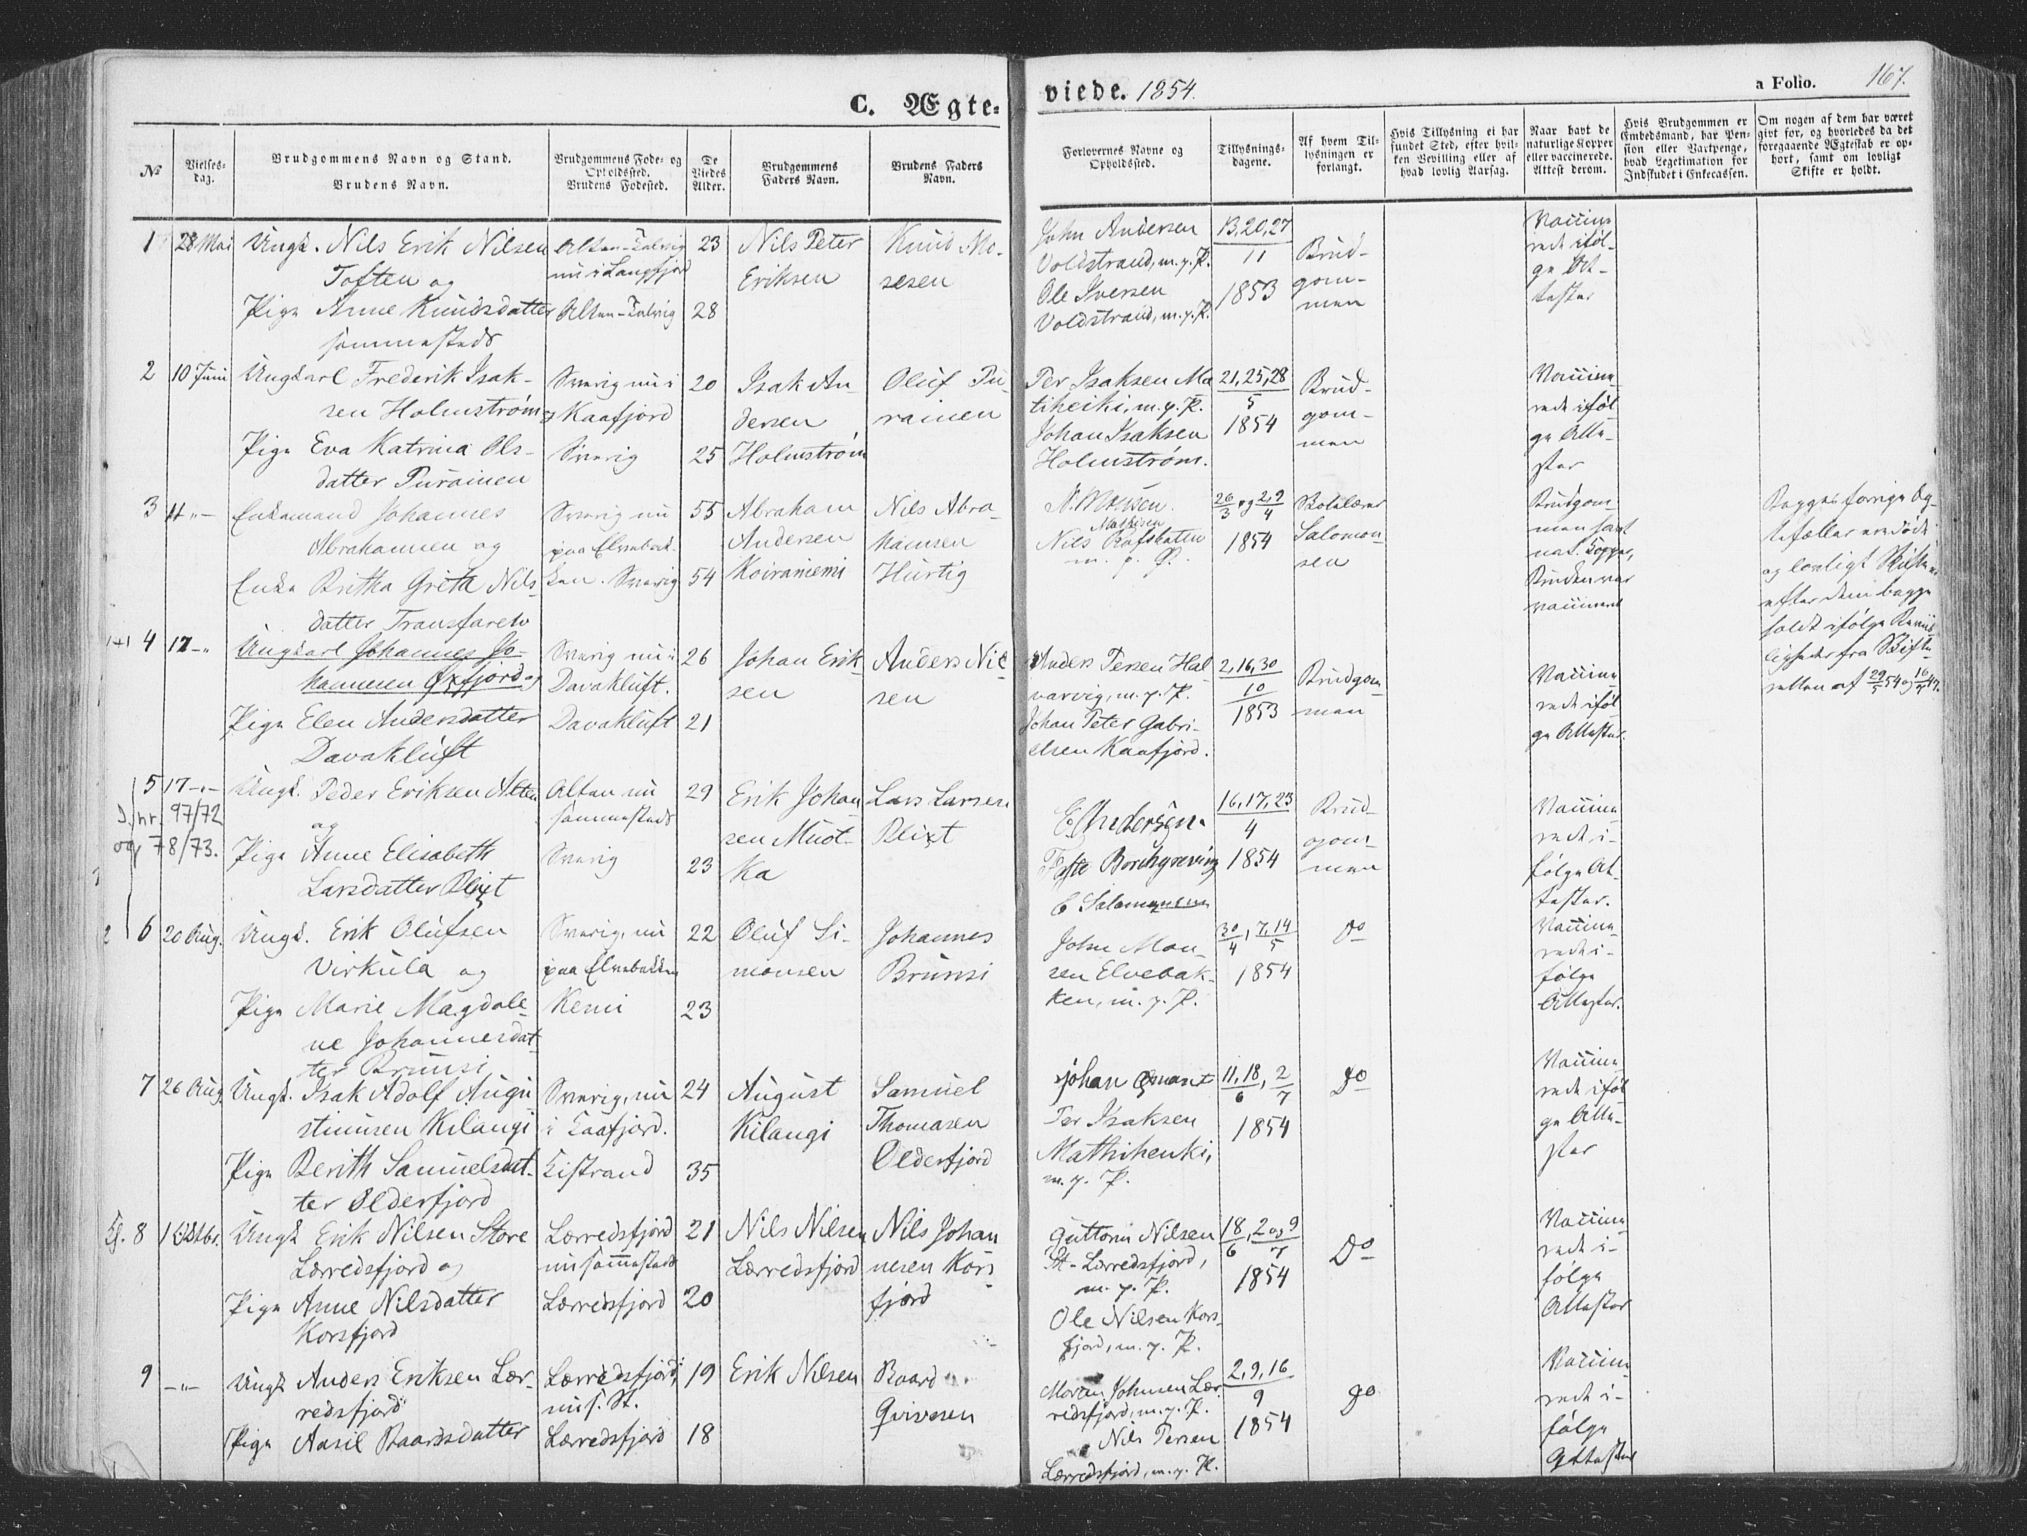 C. Ægte-
viede. 1854.
a Folio. 167.
No
Vielses-
dag.
Brudgommens Navn og Stand.
Brudens Navn.
Brudgommens Føde- og
Opholdssted.
Brudens Fødested.
De
Viedes
Alder.
Brudgommens
Faders Navn.
Brudens Faders
Navn.
Forlovernes Navne og
Opholdssted.
Tillysnings-
dagene.
Af hvem Til-
lysningen er
forlangt.
Hvis Tillysning ei har
fundet Sted, efter hvil-
ken Bevilling eller af
hvad lovlig Aarsag.
Naar havt de
naturlige Kopper
eller vaccinerede.
Attest derom.
Hvis Brudgommen er
Embedsmand, har Pen-
sion eller Vartpenge,
hvad Legetimation for
Indskudet i Enkecassen.
Om nogen af dem har været
gift før, og hvorledes da det
foregaaende Ægteskab er op-
hørt, samt om lovligt
Skifte er holdt.
1 28 Mai Ungk. Nils Erik Nilsen
Toften og
Pige Anne Knudsdatter
sammesteds
Alten-Talvig
nu i Langfjord
Alten-Talvig
23
28
Nils Peter
Eriksen
Knud Mo-
sesen
John Andersen
Voldstrand, m.p.P.
Ole Iversen
Voldstrand, m.p.P.
13,20,27
11
1853
Brud-
gom-
men
Vaccine-
rede iføl-
ge At-
tester
2 10 Juni Ungkarl Frederik Isak-
sen Holmstrøm og
Pige Eva Katrina Ols-
datter Purainen
Sverig nu i
Kaafjord
Sverig
20
25
Isak An-
dersen
Holmstrøm
Oluf Pu-
rainen
Per Isaksen Ma-
tiheiki, m.p.P.
Johan Isaksen
Holmstrøm.
21,25,28
5
1854
Brud-
gom-
men
Vaccine-
rede iføl-
ge Atte-
ster
3 11 -"- Enkemand Johannes
Abrahamsen og
Enke Britha Greta Nils-
datter
Sverig nu
paa Elvebak-
ken. Sverig
55
54
Abraham
Andersen
Koiraniemi
Nils Abra-
hamsen
Hurtig
Nils
m. p. P.
26/3 og 2,9/4
1854
Salomon-
sen
Brudgom-
men havt
nat. Kopper,
Bruden var
vaccineret
Begges forrige Æg-
tefæller ere døde
og lovligt Skifte
efter dem begge
holdt ifølge Bevid-
ligheder fra Skifte-
retten af
4 17 -"- Ungkarl Johannes Jo-
hannesen Øxfjord og
Pige Elen Andersdatter
Davakluft
Sverig nu i
Davakluft.
Davakluft
26
21
Johan Erik-
sen
Anders Nil-
sen
Anders Persen Hal-
varvig, m.p.P.
Johan Peter Gabri-
elsen Kaafjord.
2,16,30
10
1853
Brudgom-
men
Vaccine-
rede iføl-
ge Attester.
5 17 -"- Ungk. Peder Eriksen Alten
og
Pige Anne Elisabeth
Larsdatter Blixt
J.nr. 97/72
og 78/73.
Alten nu
sammesteds
Sverig
29
23
Erik Johan-
sen Muot-
ka
Lars Larsen
Blixt
E Andersen.
C Salamonsen
16,17,23
4
1854
Brud-
gom-
men
Vaccine-
rede i-
følge At-
tester.
6 20 Aug. Ungk. Erik Olufsen
Virkula og
Pige Marie Magdale-
ne Johannesdat-
ter Brunsi
Sverig, nu
paa Elvebakken
Kemi
22
23
Oluf Si-
monsen
Johannes
Brunsi
John Mon-
sen Elvebak-
ken, m.p.P.
30/4, 7,14/5
1854
Do
Vaccine-
rede i-
følge
Attester.
7 26 Aug. Ungk. Isak Adolf Augu-
stinusen Kilangi
Pige Berith Samuelsdat-
ter Olderfjord
Sverig, nu
i Kaafjord.
Kistrand
24
35
August
Kilangi
Samuel
Thomasen
Olderfjord
Johan
Per Isaksen
Mathihenki,
m.p.P.
11,18/6, 2/7
1854
Do
Vaccine-
rede iføl-
ge Atte-
ster
8 1 Octbr. Ungk Erik Nilsen Store
Lærredsfjord og
Pige Anne Nilsdatter
Korsfjord
Lærredsfjord
nu sammesteds
Lærredsfjord
21
20
Nils Nilsen
Lærredsfjord
Nils Johan-
nesen Kors-
fjord
Guttorm Nilsen
St-Lærredsfjord,
m.p.P.
Ole Nilsen Kors-
fjord, m.p.P.
18/6, 2 og 9/7
1854
Do
Vaccine-
rede i-
følge
Attester
9 -"- Ungk Anders Eriksen Lær-
redsfjord
Pige Aasil Baardsdatter
Lærredsfjord,
nu s. St.
Lærredsfjord
19
18
Erik Nilsen
Baard
Qvivesen
Morten Johnsen Lær-
redsfjord, m.p.P.
Nils Persen
Lærredsfjord, m.p.P.
2,9,16
9
1854
Do
Vaccine-
rede i-
følge
Attester